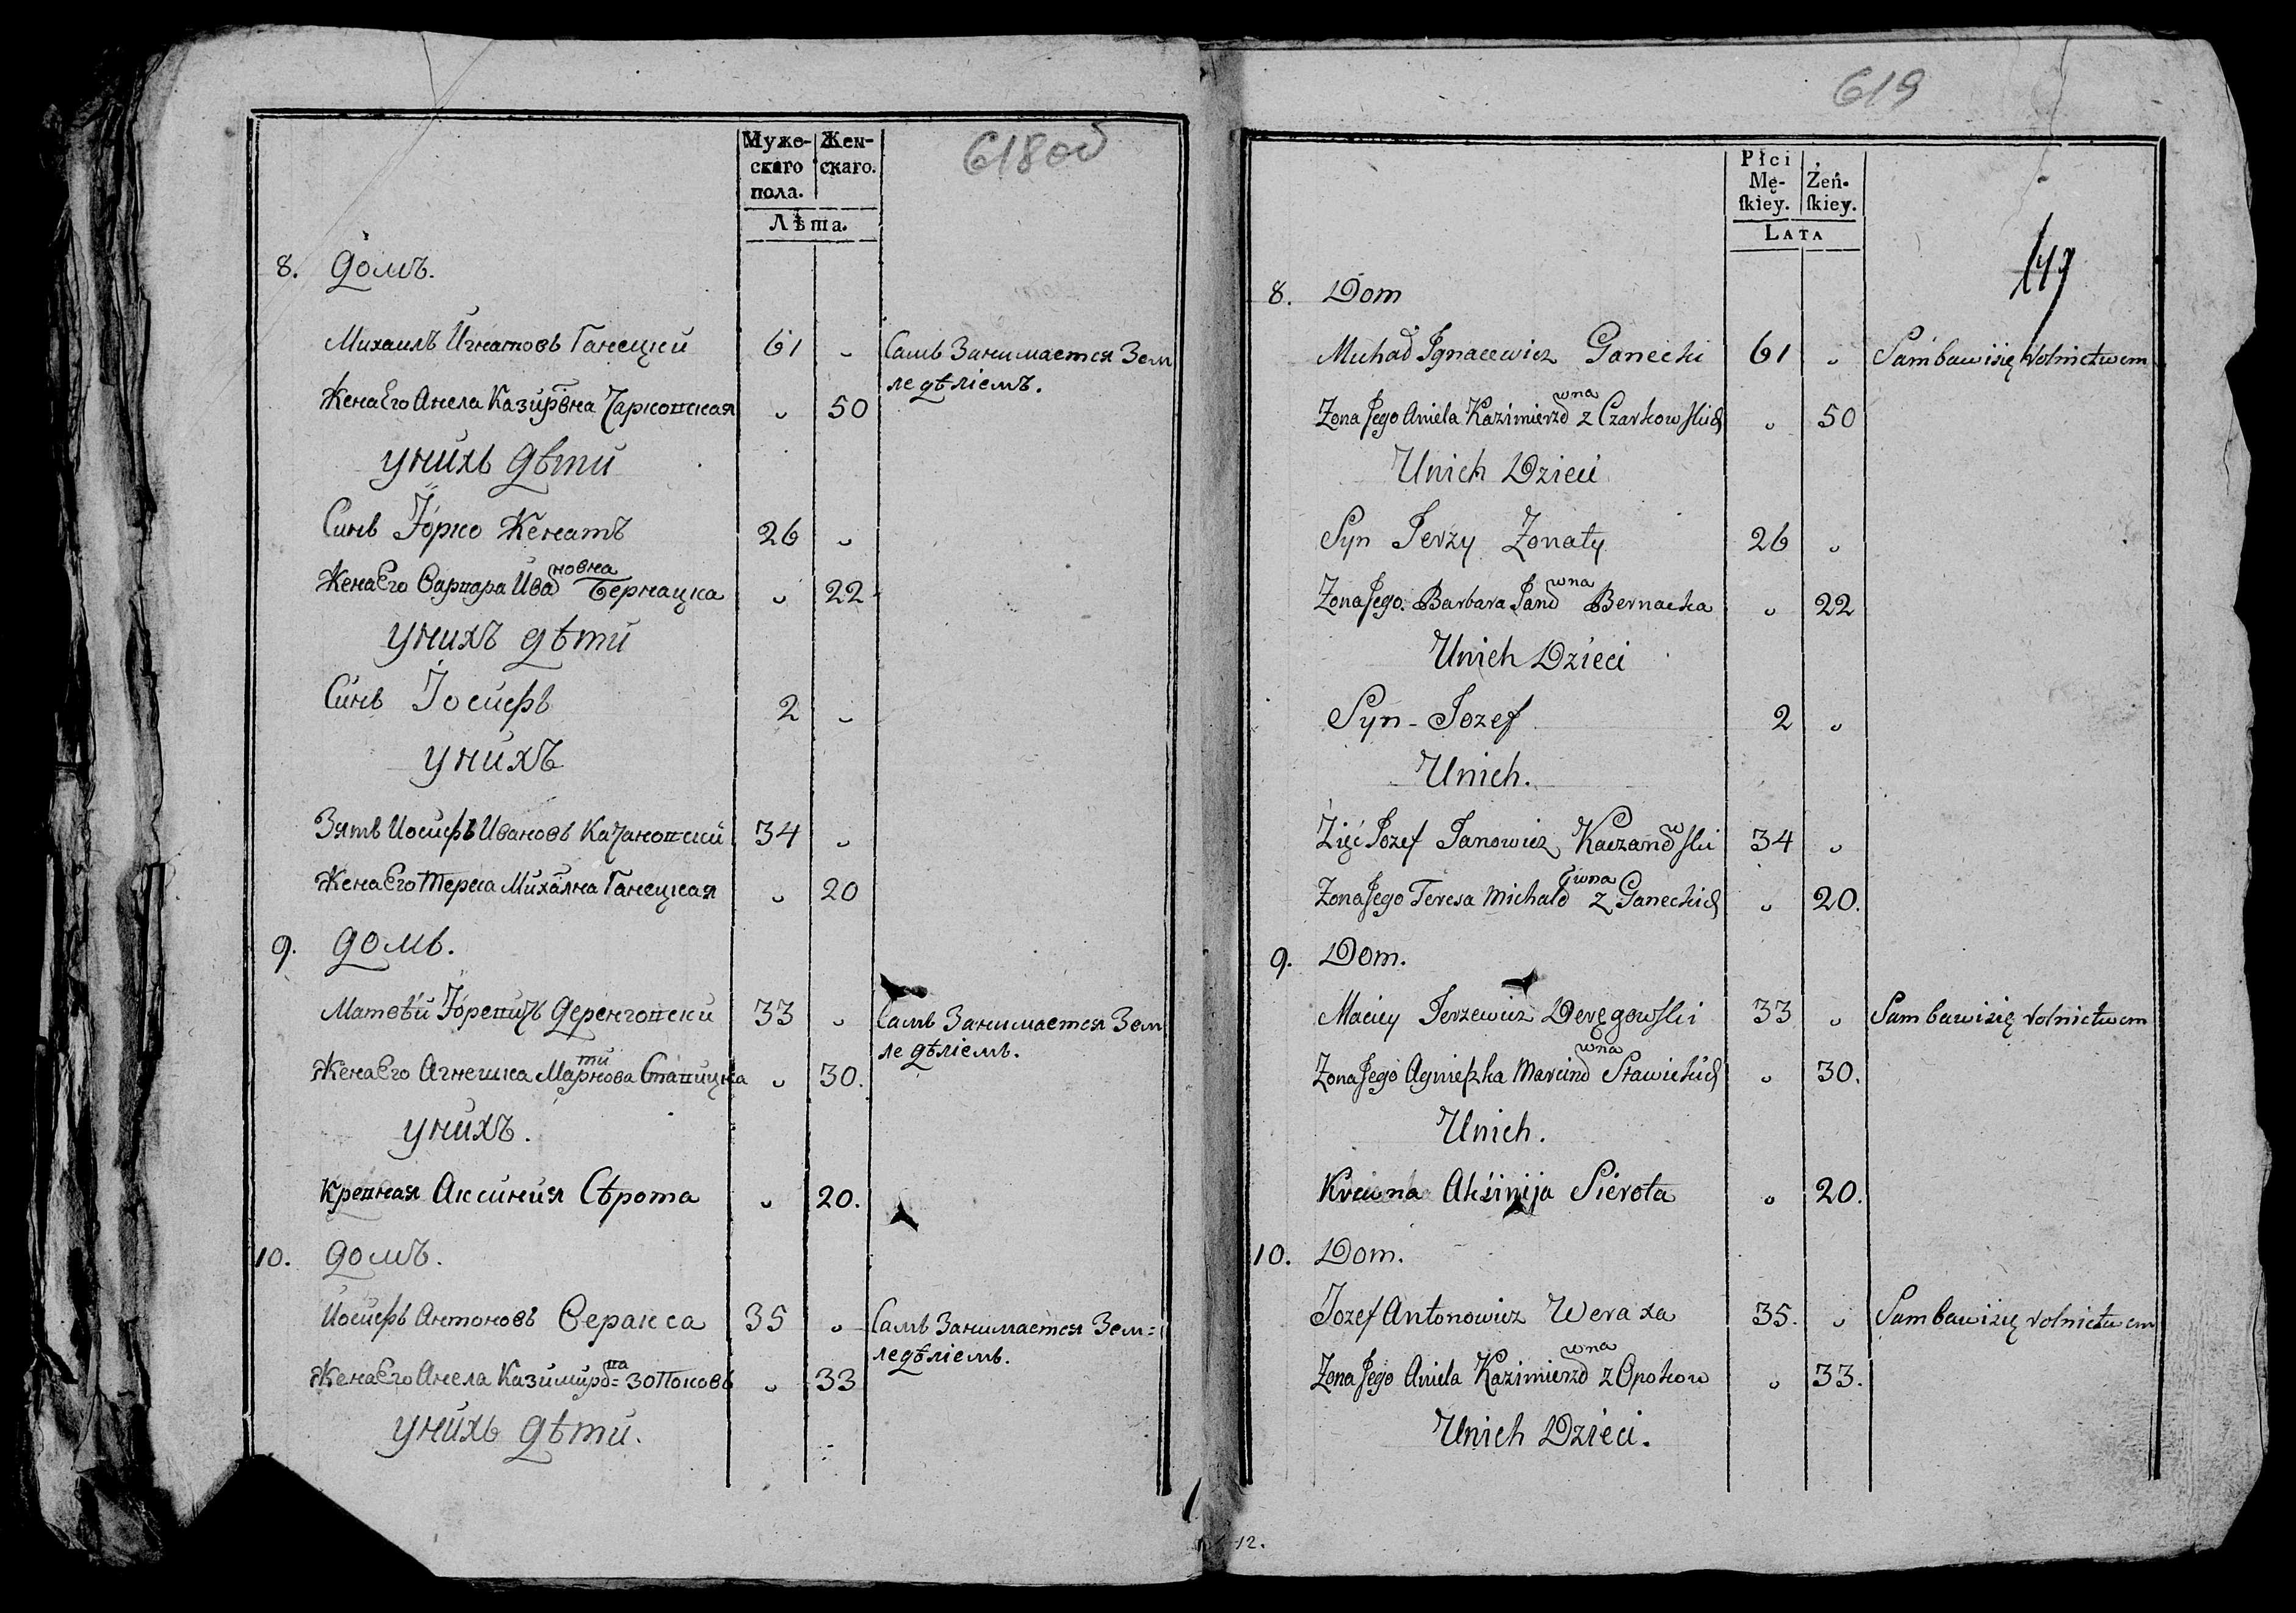 618 об
Муже-
скаго
пола.
Жен-
скаго.
Лѣта.
8. домъ.
Михаилъ Игнатовъ Ганецкий 61 „ Самъ Занимается Зем
ледѣліемъ.
Жена Его Анела Казирвна Чаркопская „ 50
унихъ дѣти
Синъ Юрко Женатъ 26 „
новна
Жена Его Варпара Ива Бернацка „ 22
унихъ дѣти
Синъ Іосифъ 2 „
унихъ
Зять Иосифъ Ивановъ Качанопский 34 „
Жена Его Тереса Михална Ганецкая „ 20
9. домъ.
Матвѣй Юрепичъ Деренгопски 33 „ Самъ Занимается Зем
ледѣліемъ.
ти
Жена Его Агнешка Марнова Стапицка „ 30.
унихъ.
Крепная Аксиния Сѣрота „ 20.
10. домъ.
Иосифъ Антоновъ Веракса 35 „ Самъ Занимается Зем=
ледѣліемъ.
па
Жена Его Анела Казимир= зоппоковъ „ 33
унихъ дѣти.
619
Płci
Mę-
ſkiey.
Żeń-
ſkiey.
LATA
8. Dom
Michał Ignacewicz Ganecki 61 „ Sam bawi się rolnictwem
wna
Zona Jego Aniela Kazimierzo z Czarkowskich „ 50
Unich Dzieci
Syn Jerzy Zonaty 26 „
wna
Zona Jego Barbara Jano Bernacka „ 22
Unich Dzieci
Syn - Jozef 2 „
Unich.
w
Zięć Jozef Janowicz Kaczanoski 34 „
wna
Zona Jego Teresa Michało z Ganeckich „ 20.
9. Dom.
Maciey Jerzewicz Deręgowski 33 „ Sam bawi się rolnictwem
wna
Zona Jego Agnieszka Marcino Stawickich „ 30.
Unich.
Krewna Aksinija Sierota „ 20.
10. Dom.
Jozef Antonowicz Weraxa 35. „ Sam bawi się rolnictwem
wna
Zona Jego Aniela Kazimierzo z Opokow „ 33.
Unich Dzieci.
12.